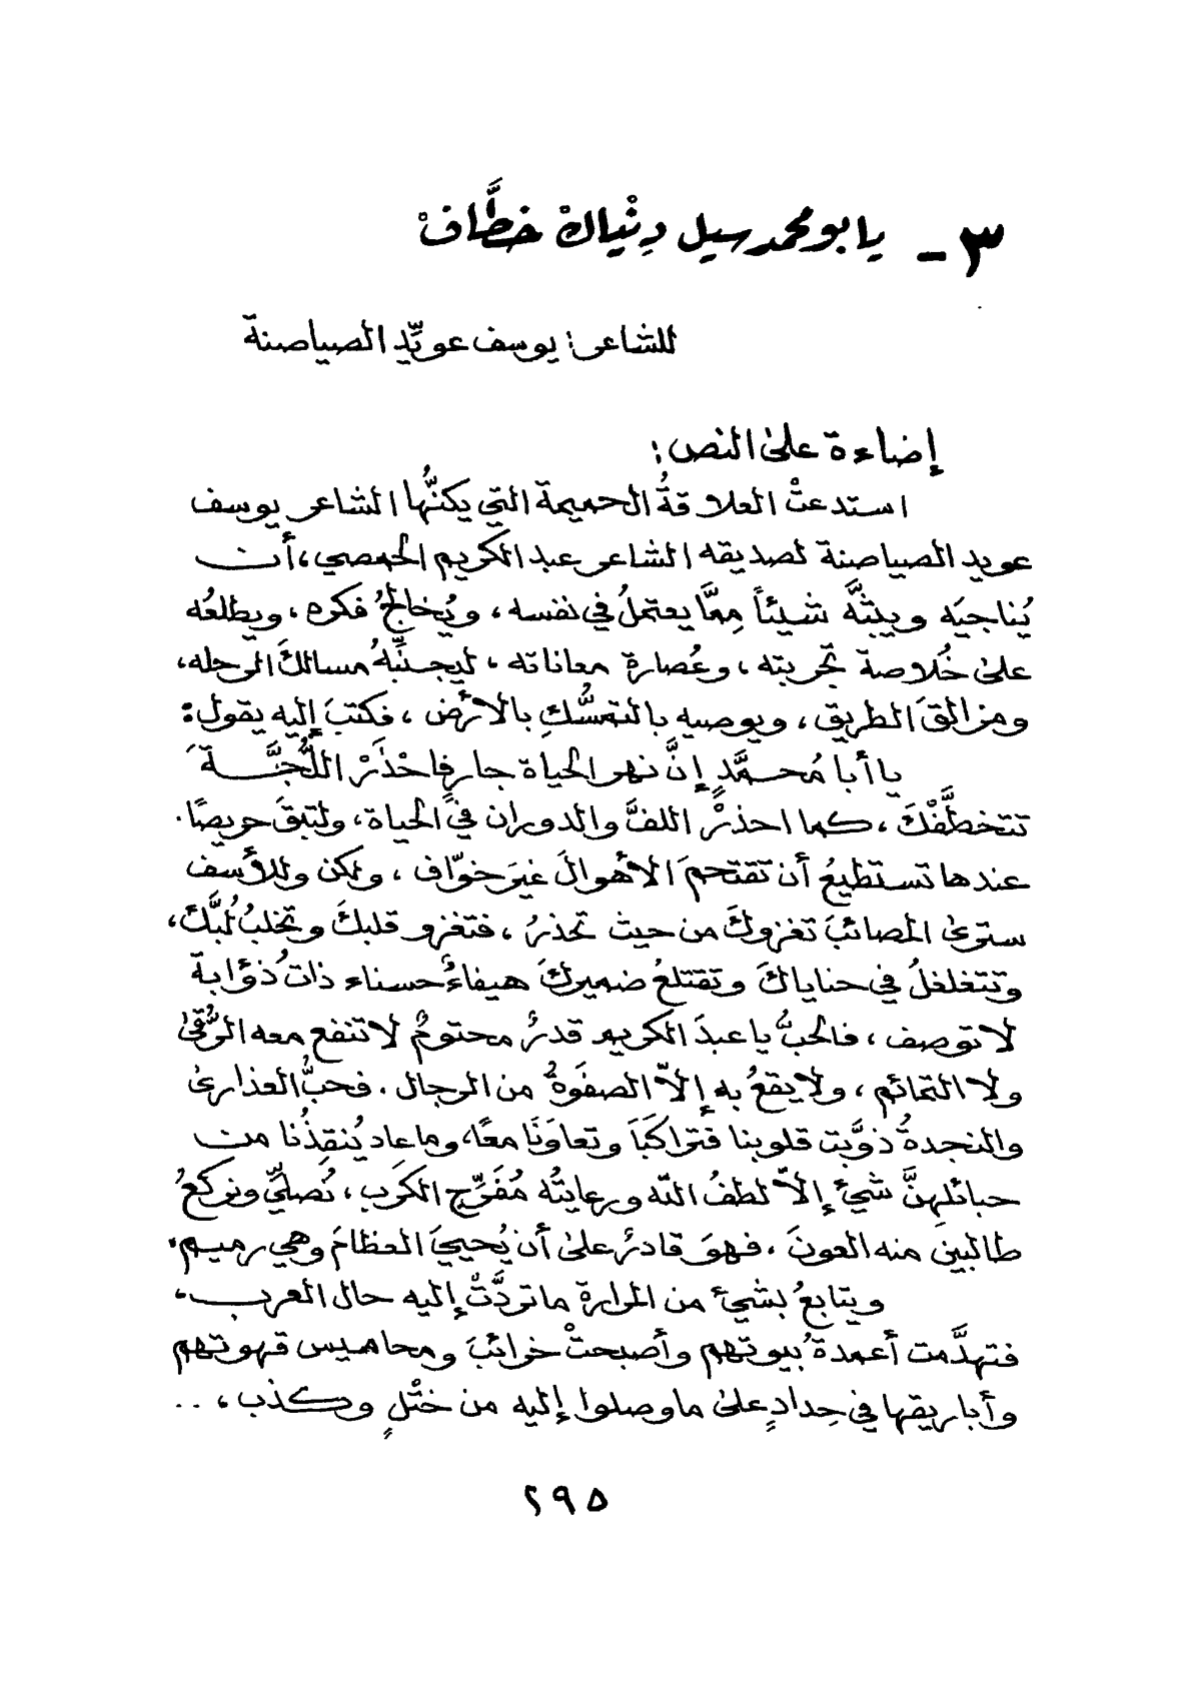 ٣ - يا بو محمد سيل دِنْياكْ خطَّافْ
للشاعر: يوسف عويِّد الصياصنة
إضاءة على النص:
استدعتْ العلاقةُ الحميمة التي يكنُّها الشاعر يوسف
عويد الصياصنة لصديقه الشاعر عبد الكريم الحمصي، أن
يُناجيَه ويبثَّه شيئاً مِمَّا يعتملُ في نفسه، ويُخالجُ فكره، ويطلعُه
على خُلاصة تجربته، وعُصارة معاناته، ليجنِّبهُ مسالكَ الرحله،
ومزالقَ الطريق، ويوصيه بالتمسُّكِ بالأرض، فكتبَ إليه يقول:
يا أبا مُحمَّدٍ إنَّ نهر الحياة جارٍفاحْذَرْ اللُّجَّةَ
تتخطَّفْكَ، كما احذرْ اللفَّ والدوران في الحياة، ولتبقَ حريصًا.
عندها تستطيعُ أن تقتحمَ الأهوالَ غيرَ خوّاف، ولكن وللأسف
سترى المصائبَ تغزوكَ من حيث تحذرُ، فتغزو قلبكَ وتخلبُ لُبَّكَ،
وتتغلغلُ في حناياكَ وتقتلعُ ضميركَ هيفاءُ حسناء ذاتُ ذؤابة
لا توصف، فالحبُّ يا عبدَ الكريم قدرٌ محتومٌ لا تنفع معه الرُّقى
ولا التمائم، ولا يقعُ به إلاّ الصفَوةُ من الرجال. فحبُّ العذارى
والنجدةُ ذوَّبت قلوبنا فتراكبَا وتعاوَنَا معًا، وما عاد يُنقِذُنا من
حبائلِهنَّ شيءٌ إلاّ لطفُ الله ورعايتُه مُفَرِّجِ الكَرَب، نُصلِّي ونركعُ
طالبين منه العونَ، فهوَ قادرٌ على أن يُحييَ العظامَ وهي رميم.
ويتابعُ بشيء من المرارة ما تردَّتْ إليه حال العرب،
فتهدَّمت أعمدةُ بيوتهم وأصبحتْ خرائبَ ومحاميس قهوتهم
وأباريقها في حِدادٍ على ما وصلوا إليه من ختْلٍ وكذب، ..
٢٩٥